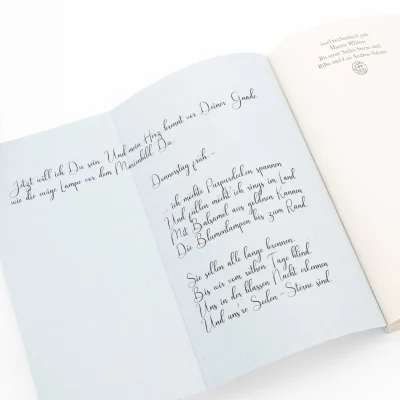 Jetzt will ich Du sein. Und mein Herz brennt vor Deiner Gnade,
wie die ewige Lampe vor dem Marienbild. Du.
Donnerstag früh –
ich möchte Purpurdecken spannen
Und füllen möcht' ich rings im Land
Mit Balsamöl aus goldnen Kannen
Die Blumenlampen bis zum Rand.
Sie sollen alle lange brennen,
Bis wir vom rothen Tage blind.
Uns in der blassen Nacht erkennen
Und uns're Seelen – Sterne sind.
insel taschenbuch
Bis unsre Seelen Sterne sind
Rilke und Lou Andreas-Salomé